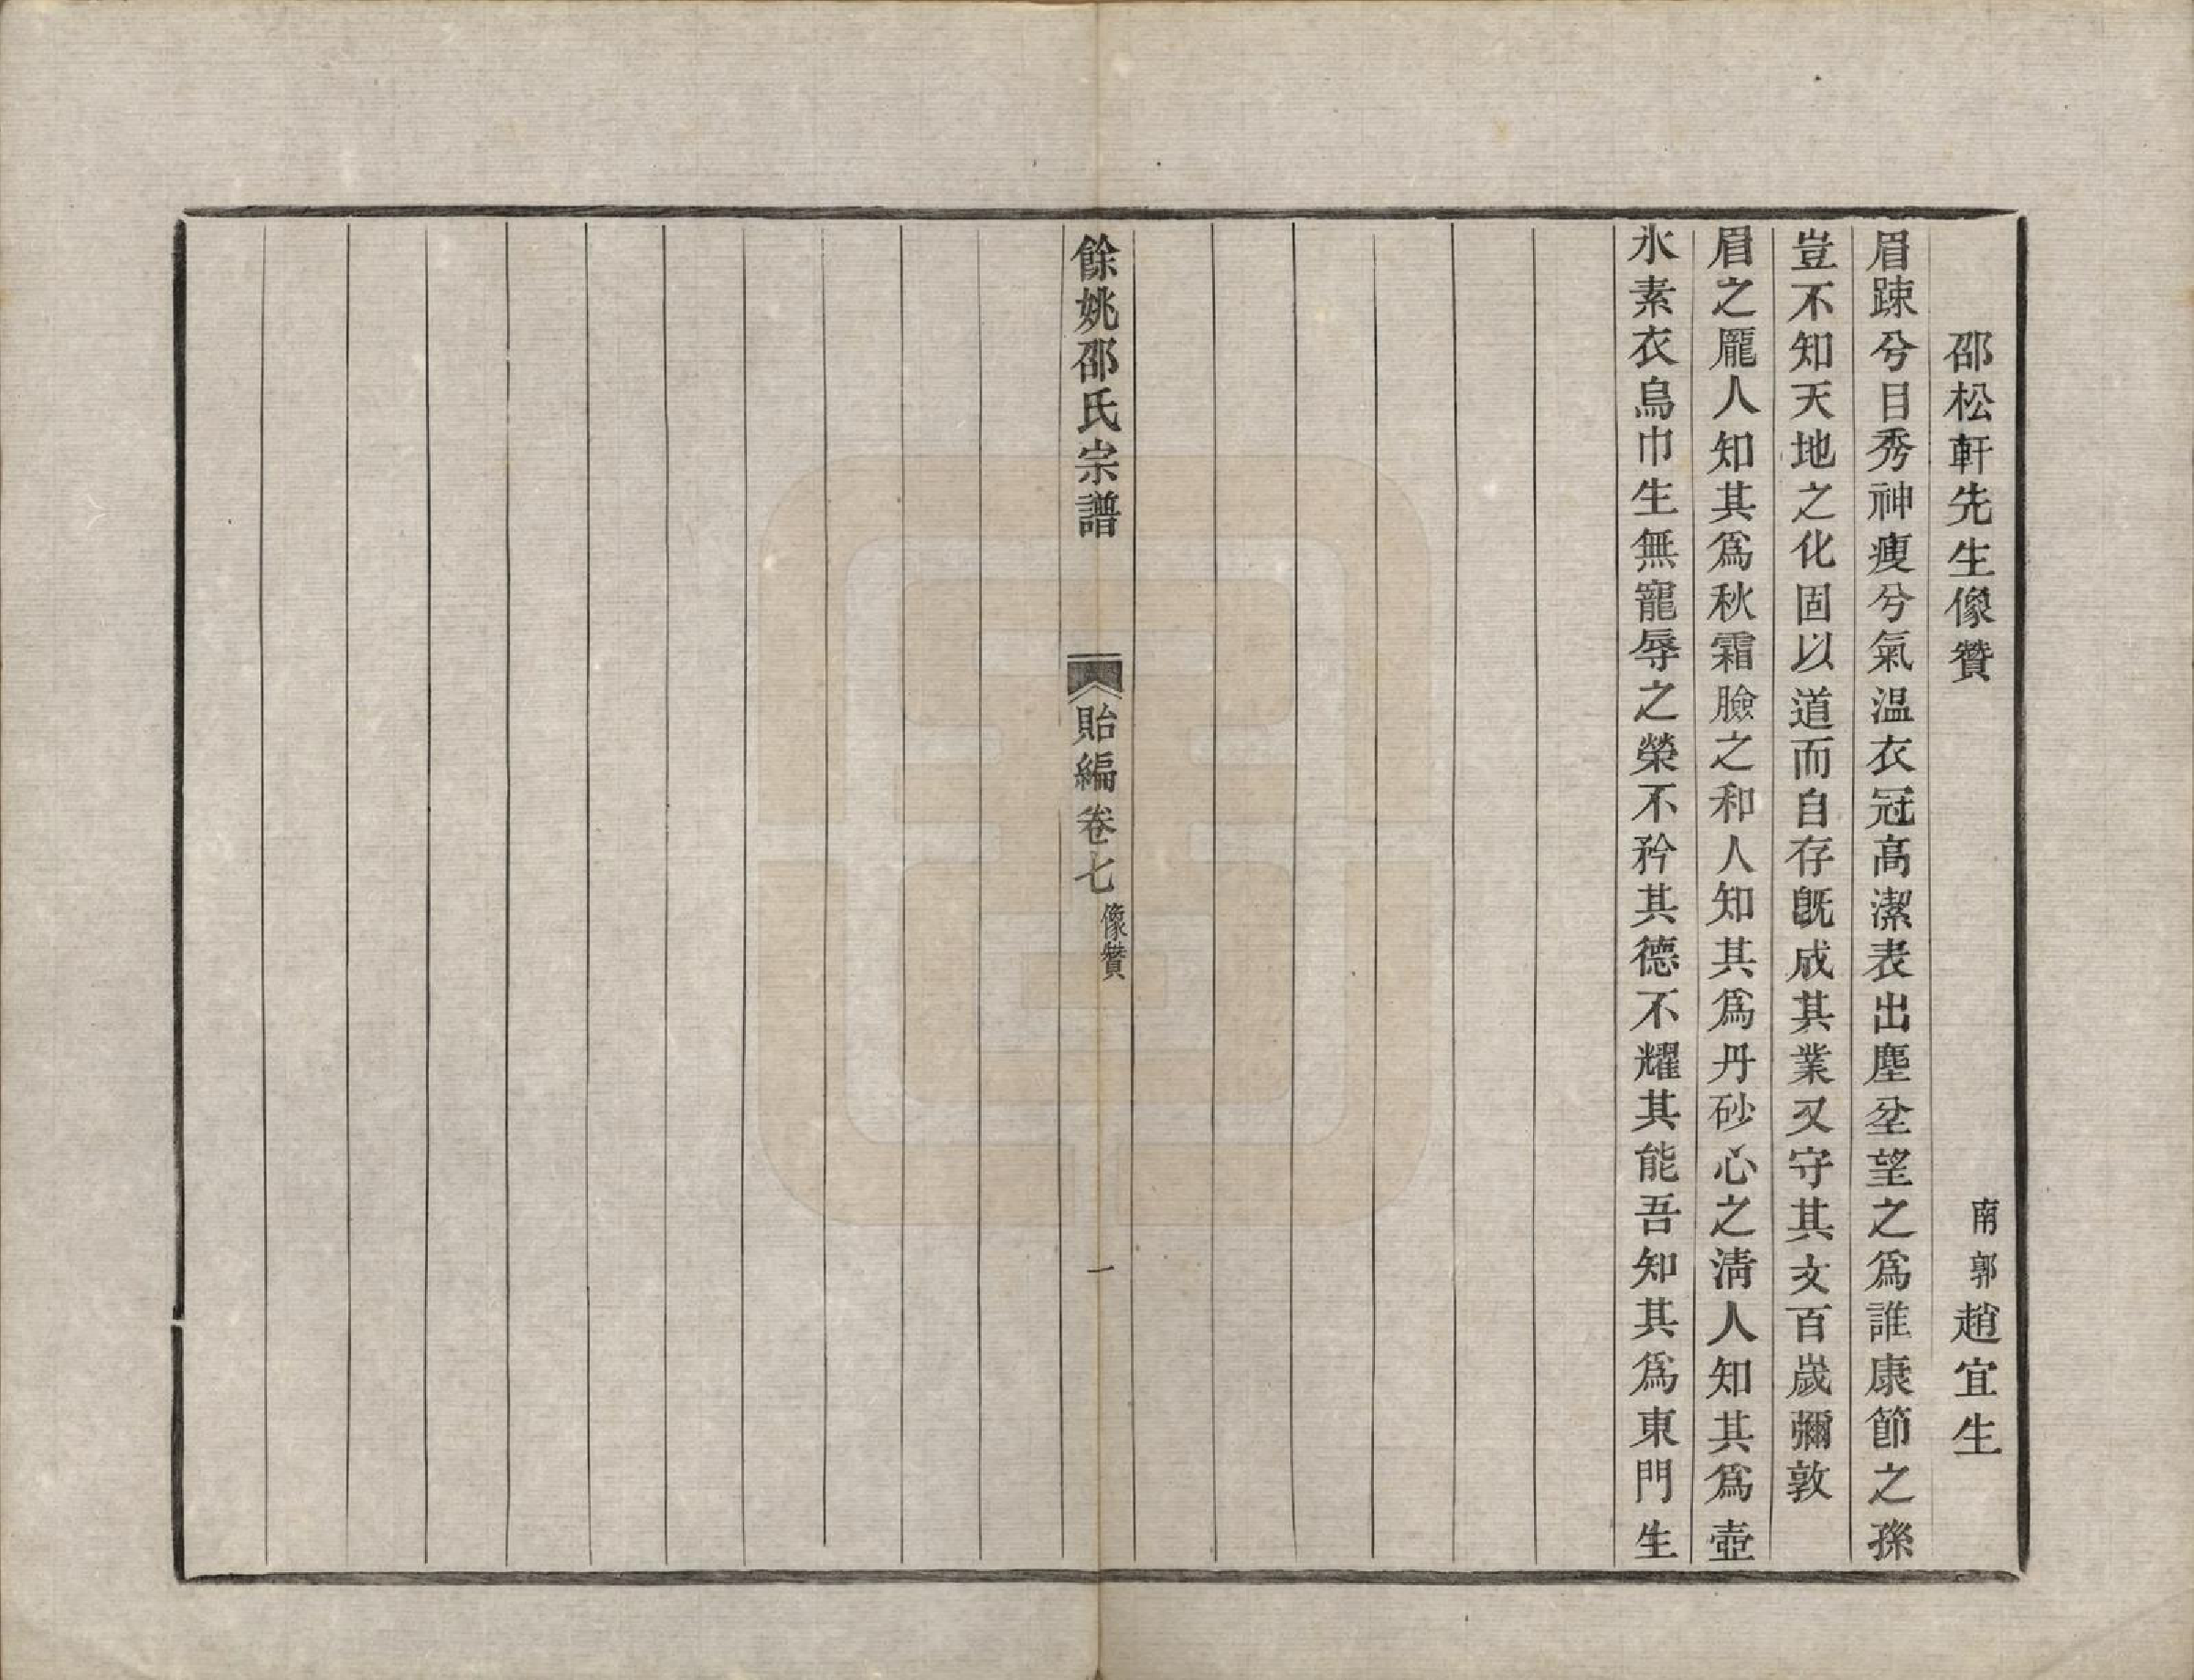 邵松軒先生像贊　南郭趙宜生
眉踈兮目秀神瘦兮氣温衣冠高潔表出塵坌望之爲誰康節之孫
豈不知天地之化固以道而自存旣成其業又守其文百歲彌敦
眉之厖人知其爲秋霜臉之和人知其爲丹砂心之淸人知其爲壺
氷素衣烏巾生無寵辱之榮不矜其德不耀其能吾知其爲東門生
餘姚邵氏宗譜　貽編卷七　像贊　一